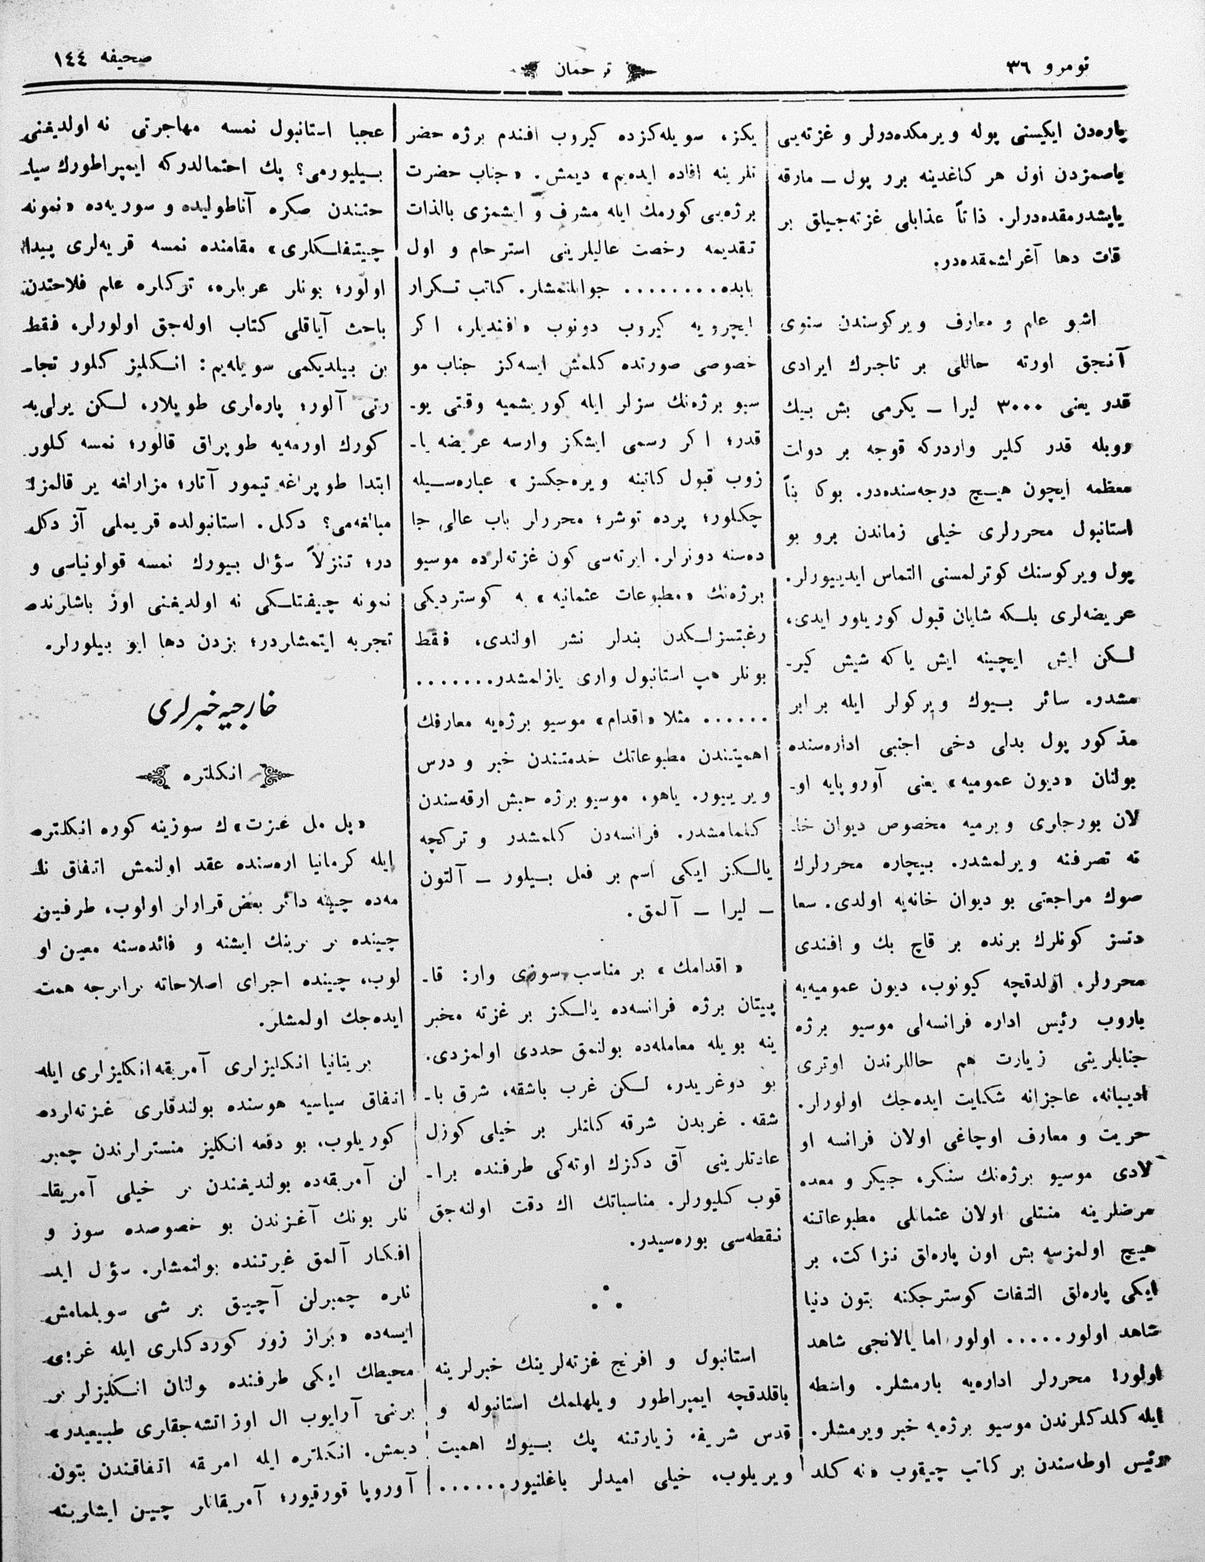 نومرو ٣٦
ترجمان
صحيفه ١٤٤
پاره‌دن ايكيسنى پوله ويرمكده‌درلر و غزته‌يى
ياصمزدن اول هر كاغدينه برر پول ــ مارقه
ياپشدرمقده‌درلر. ذاتاً عذابلى غزته‌جيلق بر
قات دها آغرلشمقده‌در.
اشبو عام و معارف ويركوسندن سنوى
آنجق اورته حاللى بر تاجرك ايرادى
قدر يعنى ٣٠٠٠ ليرا ــ يكرمى بش بيك
روبله قدر كلير واردركه قوجه بر دولت
معظمه ايچون هيچ درجه‌سنده‌در. بوكا بناً
استانبول محررلرى خيلى زماندن برو بو
پول ويركوسنك كوترلمسنى التماس ايدييورلر.
عريضه‌لرى بلكه شايان قبول كوريلور ايدى،
لكن ايش ايچينه ايش ياكه شيش كير-
مشدر. سائر بيوك ويركولر ايله برابر
مذكور پول بدلى دخى اجنبى اداره‌سنده
بولنان «ديون عموميه» يعنى آوروپايه او-
لان بورجلرى ويرميه مخصوص ديوان خا-
نه تصرفنه ويرلمشدر. بيچاره محررلرك
صوك مراجعتى بو ديوان خانه‌يه اولدى. سعا
دتسز كونلرك برنده بر قاچ بك و افندى
محررلر، اولدقچه كيونوب، ديون عموميه‌يه
باروب رئيس اداره فرانسه‌لى موسيو برژه
جنابلرينى زيارت هم حاللرندن اوترى
اديبانه، عاجزانه شكايت ايده‌جك اولورلر.
حريت و معارف اوچاغى اولان فرانسه او
لادى موسيو برژه‌نك سنكر، جيكر و معده
مرضلرينه مبتلى اولان عثمانلى مطبوعاتنه
هيچ اولمزسه بش اون پاره‌لق نزاكت، بر
ايكى پاره‌لق التفات كوسترجكنه بتون دنيا
شاهد اولور..... اولور اما يالانجى شاهد
اولور! محررلر اداره‌يه بارمشلر. واسطه
ايله كلدكلرندن موسيو برژه‌يه خبر ويرمشلر.
رئيس اوطه‌سندن بر كاتب چيقوب «نه كلد
يكز، سويله‌كزده كيروب افندم برژه حضر
تلرينه افاده ايده‌يم» ديمش. «جناب حضرت
برژه‌يى كورمك ايله مشرف و ايشمزى بالذات
تقديمه رخصت عاليلرينى استرحام و اول
بابده........ جوابلنمشلر. كاتب تكرار
ايچرويه كيروب دونوب «افنديلر، اكر
خصوصى صورتده كلمش ايسه‌كز جناب مو
سيو برژه‌نك سزلر ايله كوريشميه وقتى يو-
قدر؛ اكر رسمى ايشكز وارسه عريضه يا-
زوب قبول كاتبنه ويره‌جكسز» عباره‌سيله
چكلور؛ پرده توشر؛ محررلر باب عالى جا
ده‌سنه دونرلر. ايرته‌سى كون غزته‌لرده موسيو
برژه‌نك «مطبوعات عثمانيه» يه كوسترديكى
رغبتسزلكدن بندلر نشر اولندى، فقط
بونلر هپ استانبول وارى يازلمشدر.......
...... مثلا «اقدام» موسيو برژه‌يه معارفك
اهميتندن مطبوعاتك خدمتندن خبر و درس
ويرييور. ياهو، موسيو برژه حبش ارقه‌سندن
كلمامشدر. فرانسه‌دن كلمشدر و تركچه
يالكز ايكى اسم بر فعل بيلور ــ آلتون
ــ ليرا ــ آلمق.
«اقدامك» بر مناسب سوزى وار: قا-
پيتان برژه فرانسه‌ده يالكز بر غزته مخبر
ينه بويله معامله‌ده بولنمق حددى اولمزدى.
بو دوغريدر، لكن غرب باشقه، شرق با-
شقه. غربدن شرقه كلنلر بر خيلى كوزل
عادتلرينى آق دكزك اوته‌كى طرفنده برا-
قوب كليورلر. مناسباتك اك دقت اولنه‌جق
نقطه‌سى بوره‌سيدر.
استانبول و افرنج غزته‌لرينك خبرلرينه
باقلدقچه ايمپراطور ويلهلمك استانبوله و
قدس شريفه زيارتنه پك بيوك اهميت
ويريلوب، خيلى اميدلر باغلنيور......
عجبا استانبول نمسه مهاجرتى نه اولديغنى
بيليورمى؟ پك احتمالدركه ايمپراطورك سيا-
حتندن صكره آناطوليده و سوريه‌ده «نمونه
چيتفلكلرى» مقامنده نمسه قريه‌لرى پيدا
اولور؛ بونلر عربلره، تركلره علم فلاحتدن
باحث آياقلى كتاب اوله‌جق اولورلر، فقط
بن بيلديكمى سويله‌يم: انكليز كلور تجا-
رتى آلور؛ پاره‌لرى طوپلار، لكن يرلى‌يه
كورك اورمه‌يه طوپراق قالور؛ نمسه كلور
ابتدا طوپراغه تيمور آتار؛ مزارلغه ير قالمز!
مبالغه‌مى؟ دكل. استانبولده قريملى آز دكل
در؛ تنزلاً سؤال بيورك نمسه قولونياسى و
نمونه چيفتلكى نه اولديغنى اوز باشلرنده
تجربه ايتمشلردر؛ بزدن دها ايو بيلورلر.
خارجيه خبرلرى
انكلتره
«پل مل غزت» ك سوزينه كوره انكلتره
ايله كرمانيا اره‌سنده عقد اولنمش اتفاق نا-
مه‌ده چينه دائر بعض قرارلر اولوب، طرفين
چينده بر برينك ايشنه و فائده‌سنه معين او
لوب، چينده اجراى اصلاحاته برابرجه همت
ايده‌جك اولمشلر.
بريتانيا انكليزلرى آمريقه انكليزلرى ايله
اتفاق سياسيه هوسنده بولندقلرى غزته‌لرده
كوريلوب، بو دفعه انكليز منسترلرندن چمبر
لن آمريقه‌ده بولنديغندن بر خيلى آمريقا-
نلر بونك آغزندن بو خصوصده سوز و
افكار آلمق غيرتنده بولنمشلر. سؤل ايد-
نلره چمبرلن آچيق بر شى سويلمامش
ايسه‌ده «براز زور كوردكلرى ايله غربى
محيطك ايكى طرفنده بولنان انكليزلر بر
برينى آرايوب ال اوزاتشه‌جقلرى طبيعيدر»
ديمش. انكلتره ايله امريقه اتفاقندن بتون
آوروپا قورقيور؛ آمريقانلر چين ايشلرينه